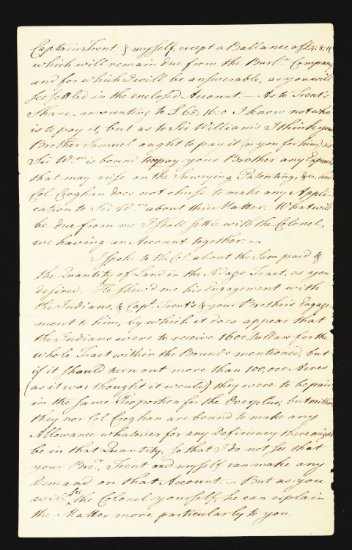 Captain Trent & myself, except a Ballance of £4:8:11
which will remain due from the Burl.n Company
and for which I will be answerable, as you will
see settled in the enclosed Account — As to Trent's
Share, amounting to £65:16:0 I know not who
is to pay it, but as to Sir William's I think your
Brother Samuel ought to pay it (or you for him) as
Sir W.m is bound to pay your Brother any Expence
that may arise on the Surveying, Patenting, &c. and
Col. Croghan does not chuse to make any Appli-
cation to Sir W.m about this Matter. What will
be due from me I shall settle with the Colonel,
we having an Account together. —
I spoke to the Col. about the Sum paid &
the Quantity of Land in the Otego Tract, as you
desired. He shew'd me his Engagement with
the Indians, & Capt. Trent's & your Brother's Engage-
ment to him, by which it does appear that
the Indians were to receive 1600 Dollars for the
whole Tract within the Bounds mentioned, but
if it should turn out more than 100,000 Acres
(as it was thought it would) they were to be paid
in the same Proportion for the Overplus; but neither
they nor Col. Croghan are bound to make any
Allowance whatever for any Deficiency there might
be in that Quantity, so that I do not see that
your Bro.r, Trent and myself can make any
Demand on that Account. — But as you
will see the Colonel yourself, he can explain
the Matter more particularly to you.